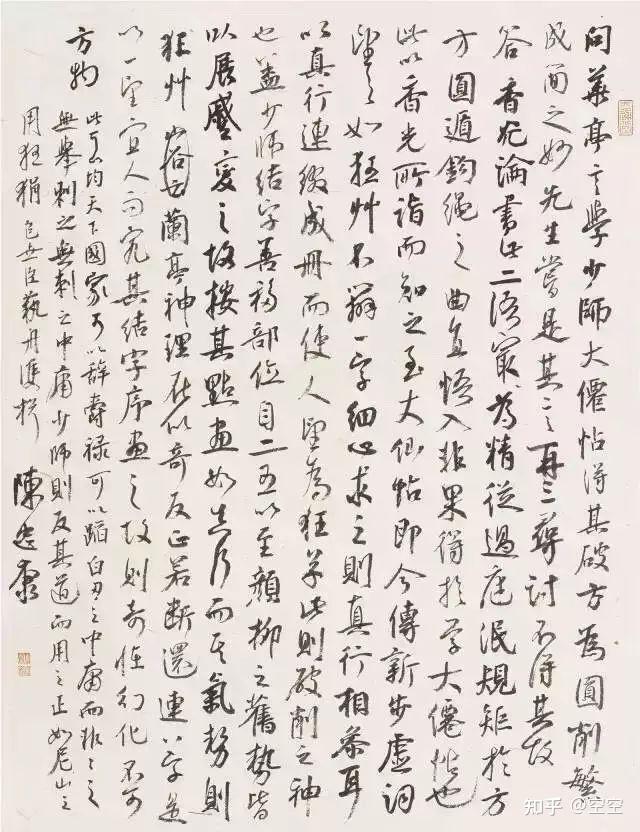 問華亭言學少師大僊帖得其破方為圓削繁
成簡之妙先生嘗是其言再三尋討不得其故
答香光論書此二語最為精從過庭泯規矩於方
方圓遁鈎繩之曲直悟入非果得於學大僊帖也
此以香光所詣而知之至大仙帖即今傳新步虛詞
望之如狂艸不辨一字細心求之則真行相參耳
以真行連綴成冊而使人望為狂草此則破削之神
也蓋少師結字善移部位自二王以至顏柳之舊勢皆
以展蹙變之故按其點畫如真行而其氣勢則
狂艸山谷云蘭亭神理在似奇反正若斷還連八字是
以一望宜人而究其結字序畫之故則奇怪幻化不可
方物
此可以均天下國家可以辭爵祿可以蹈白刃之中庸而非非之
無舉刺之無刺之中庸少師則反其道而用之正如尼山之
用狂狷 包世臣藝舟雙楫
陳忠康
知乎 @空空